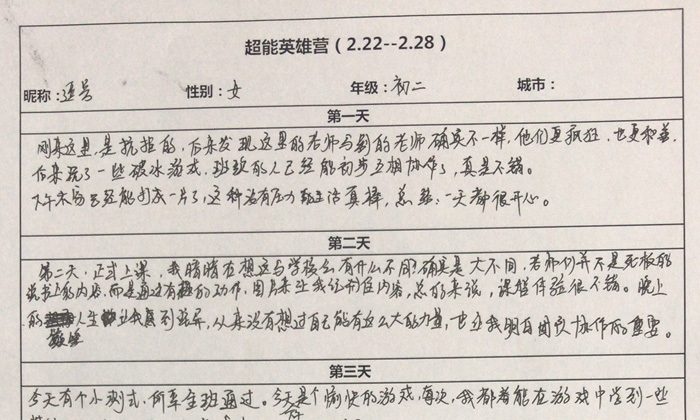 超能英雄营（2.22--2.28）
昵称：逗号 性别：女 年级：初二 城市：
第一天
刚来这里，是抗拒的，后来发现这里的老师与别的老师确实不一样，他们更疯狂，也更和善，
后来玩了一些破冰游戏，班级的人已经能初步互相协作了，真是不错。
下午大家已经能打成一片了，这种没有压力的生活真棒，总结：一天都很开心。
第二天
第二天，正式上课，我暗暗在想这与学校会有什么不同？确实是大不同，老师们并不是死板的
说书上的内容，而是通过有趣的动作，图片来让我们记住内容，总的来说，课堂体验很不错。晚上
的人生让我感到诧异，从来没有想过自己能有这么大的力量，也让我明白团队协作的重要。
第三天
今天有个小测试，所幸全班通过。今天是个愉快的游戏，每次，我都着能在游戏中学到一些